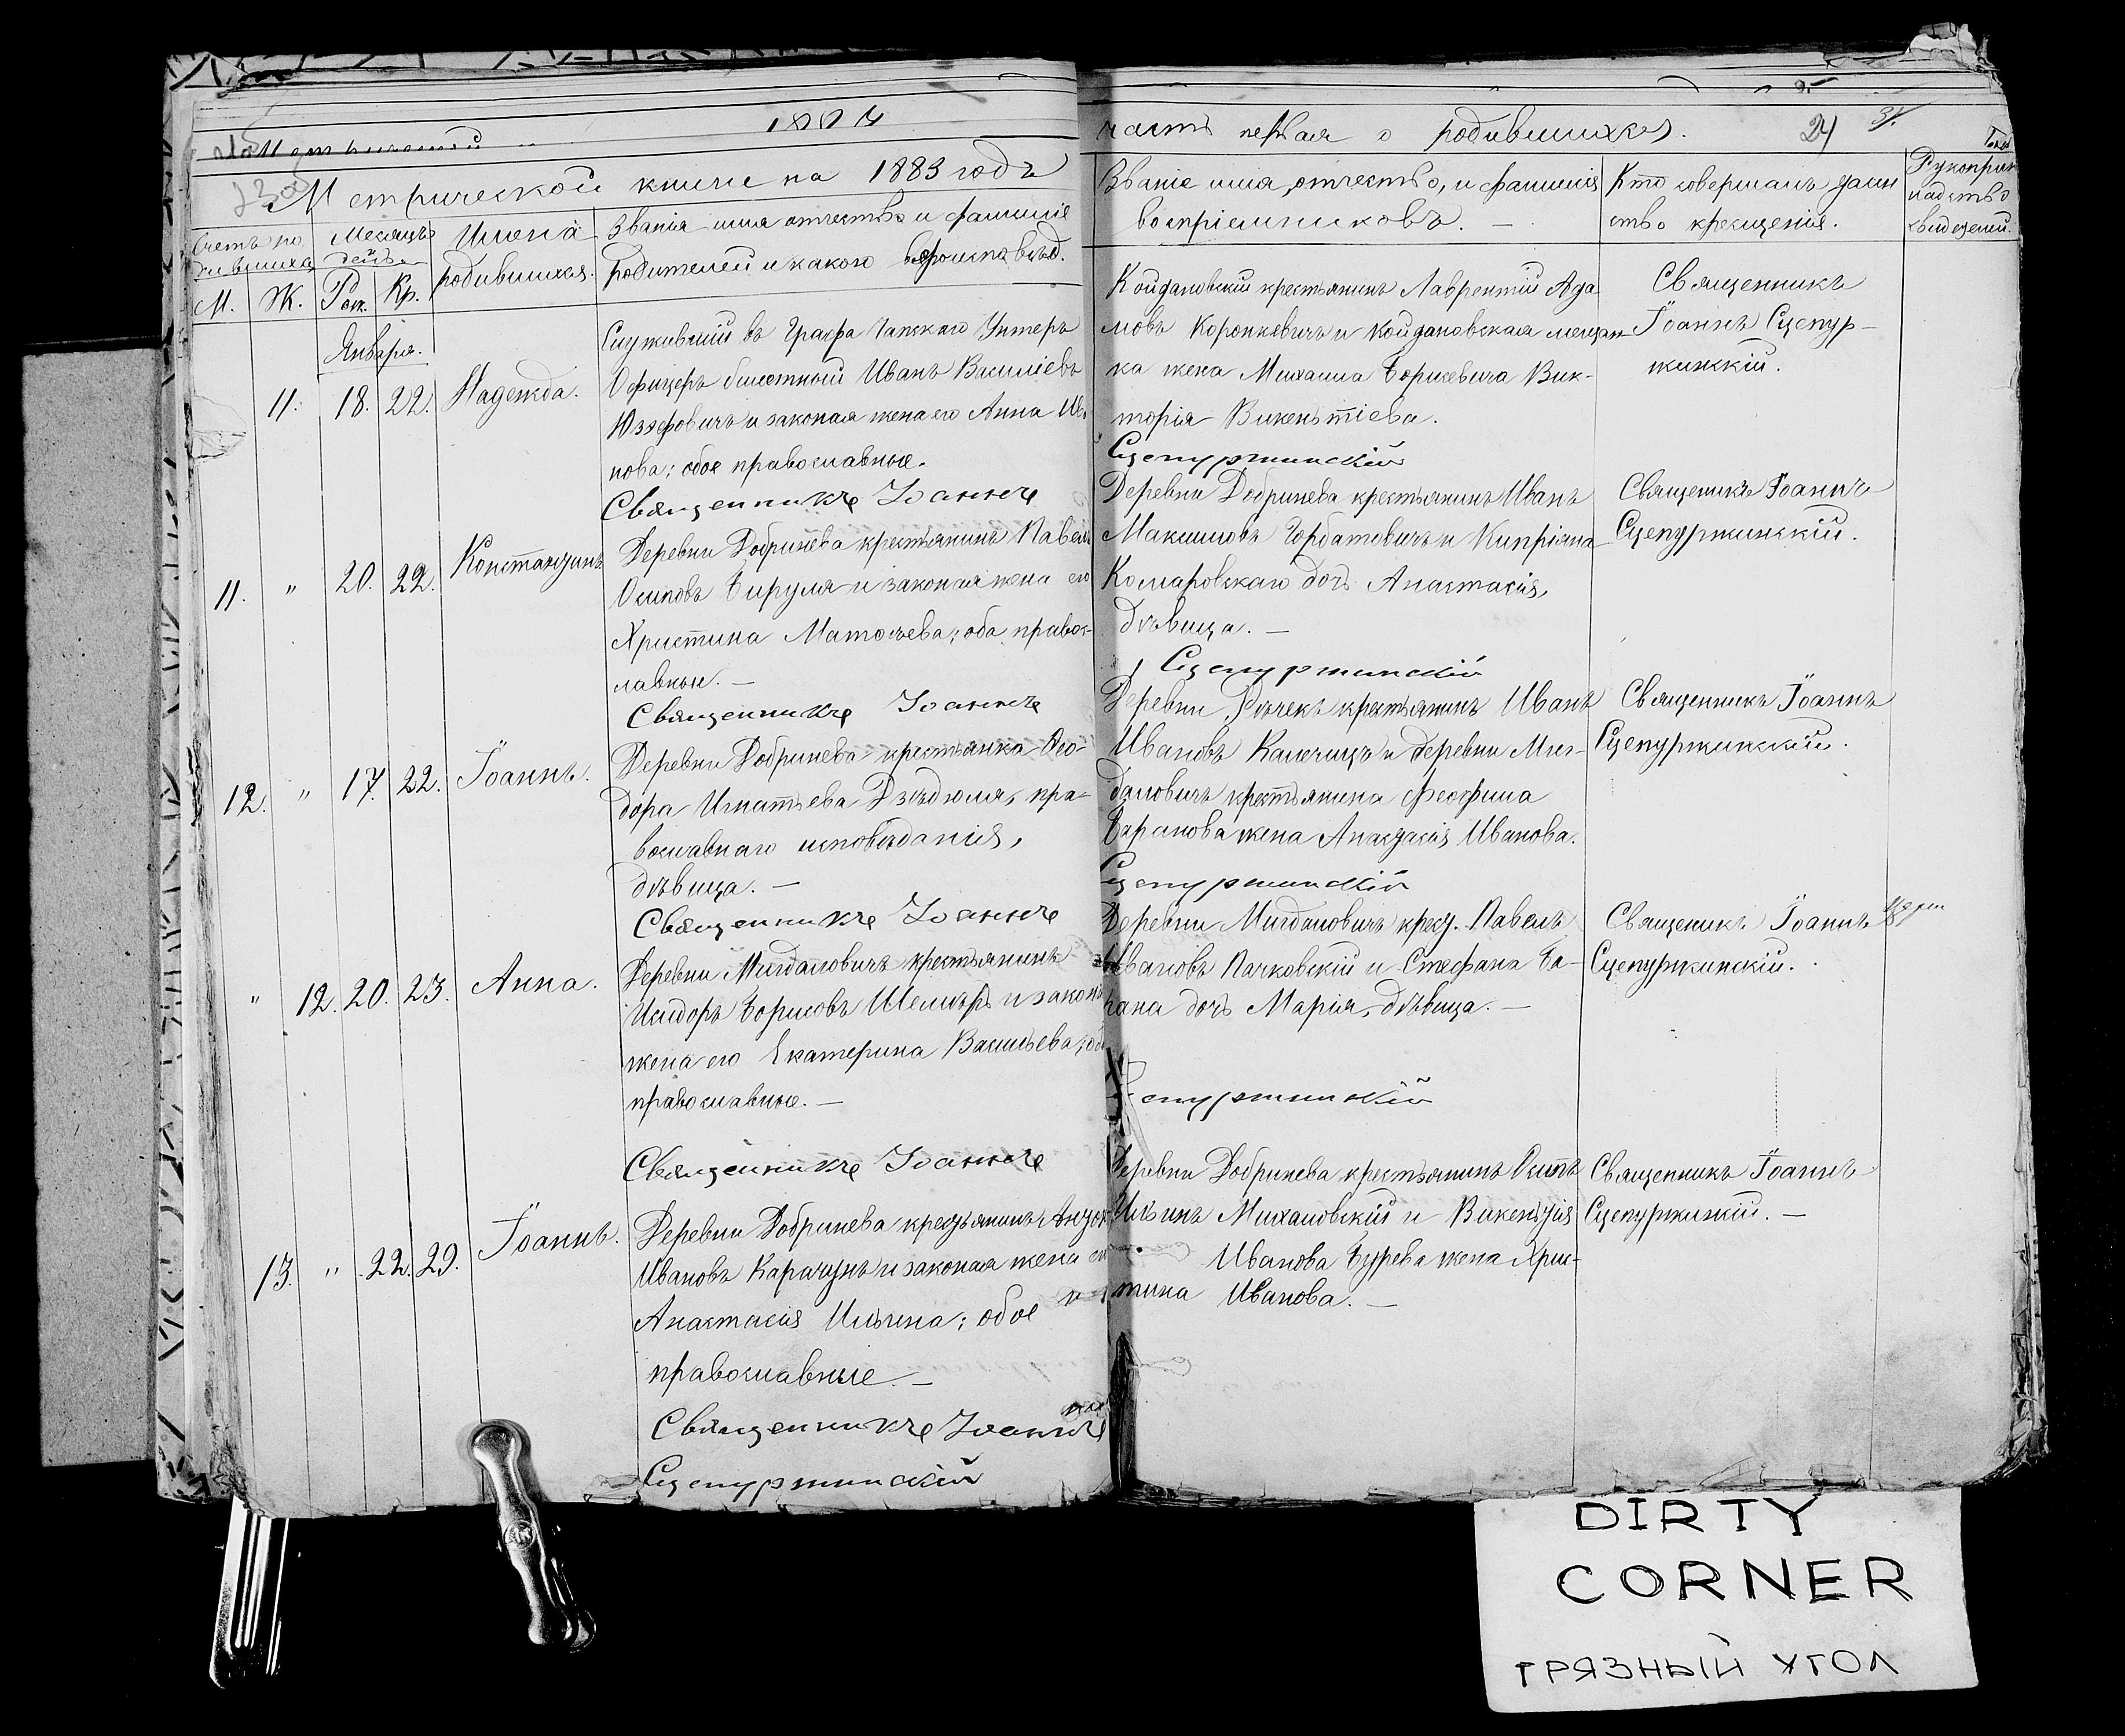 Метрической книги на 1883 годъ
часть первая о родившихся.
24
Счетъ ро-
дившихся
Месяцъ
Имена
родившихся.
Званія имя отчество и фамиліе
родителей и какого вероисповед.
М. Ж. Рож. Кр.
Званіе имя, отчество, и фамилія
воспріемниковъ. —
Кто совершалъ таин
ство крещенія.
Рукоприк
ладство
свидетелей.
Января.
11. 18. 22. Надежда.
Служившій въ Графа Чапскаго Унтеръ
Офицеръ билетный Иванъ Василіевъ
Юзефовичъ и законая жена его Анна Ива
нова; обое православные.
Священникъ Іоаннъ
Койдановскій крестьянинъ Лаврентій Ада
мовъ Коронкевичъ и Койдановская мещан
ка жена Михаила Борисевича Вик-
торія Викентіева.
Сцепуржинскій
Священникъ
Іоаннъ Сцепур-
жинскій.
11. " 20. 22. Константинъ
Деревни Добринева крестьянинъ Павелъ
Осиповъ Бируля и законая жена его
Христина Матосъева; оба правос-
лавные. —
Священникъ Іоаннъ
Деревни Добринева крестьянинъ Иванъ
Максимовъ Горбатовичъ и Кипріяна
Комаровскаго дочъ Анастасія,
дѣвица. —
Сцепуржинскій
Священикъ Іоаннъ
Сцепуржинскій.
12. " 17. 22. Іоаннъ.
Деревни Добринева крестьянка Ѳео-
дора Игнатьева Дзѣдюля, пра-
вославнаго исповѣданія,
дѣвица. —
Священникъ Іоаннъ
Деревни крестьянинъ Иванъ
Ивановъ Калечицъ и деревни Миг-
дановичъ крестьянина Феофила
Баранова жена Анастасія Иванова.
Сцепуржинскій
Священникъ Іоаннъ
Сцепуржинскій.
" 12. 20. 23. Анна.
Деревни Мигдановичъ крестьянинъ
Исидоръ Борисовъ и закон
жена его Екатерина Васильева; об
православные. —
Священникъ Іоаннъ
Деревни Мигдановичъ крест. Павелъ
Ивановъ Пачковскій и Стефана Ба-
рана дочъ Марія, дѣвица. —
Сцепуржинскій
Священикъ Іоаннъ
Сцепуржинскій.
13. " 22. 29. Іоаннъ.
Деревни Добринева крестьянинъ Антон
Ивановъ Карачунъ и законая жена ег
Анастасія Ильина; обое
православные. —
Священникъ Іоаннъ
Сцепуржинскій
Деревни Добринева крестьянинъ Осипъ
Ильинъ Михаловскій и Викентія
Иванова жена Хрис-
тина Иванова. —
Священникъ Іоаннъ
Сцепуржинскій. —
DIRTY
CORNER
ГРЯЗНЫЙ УГОЛ